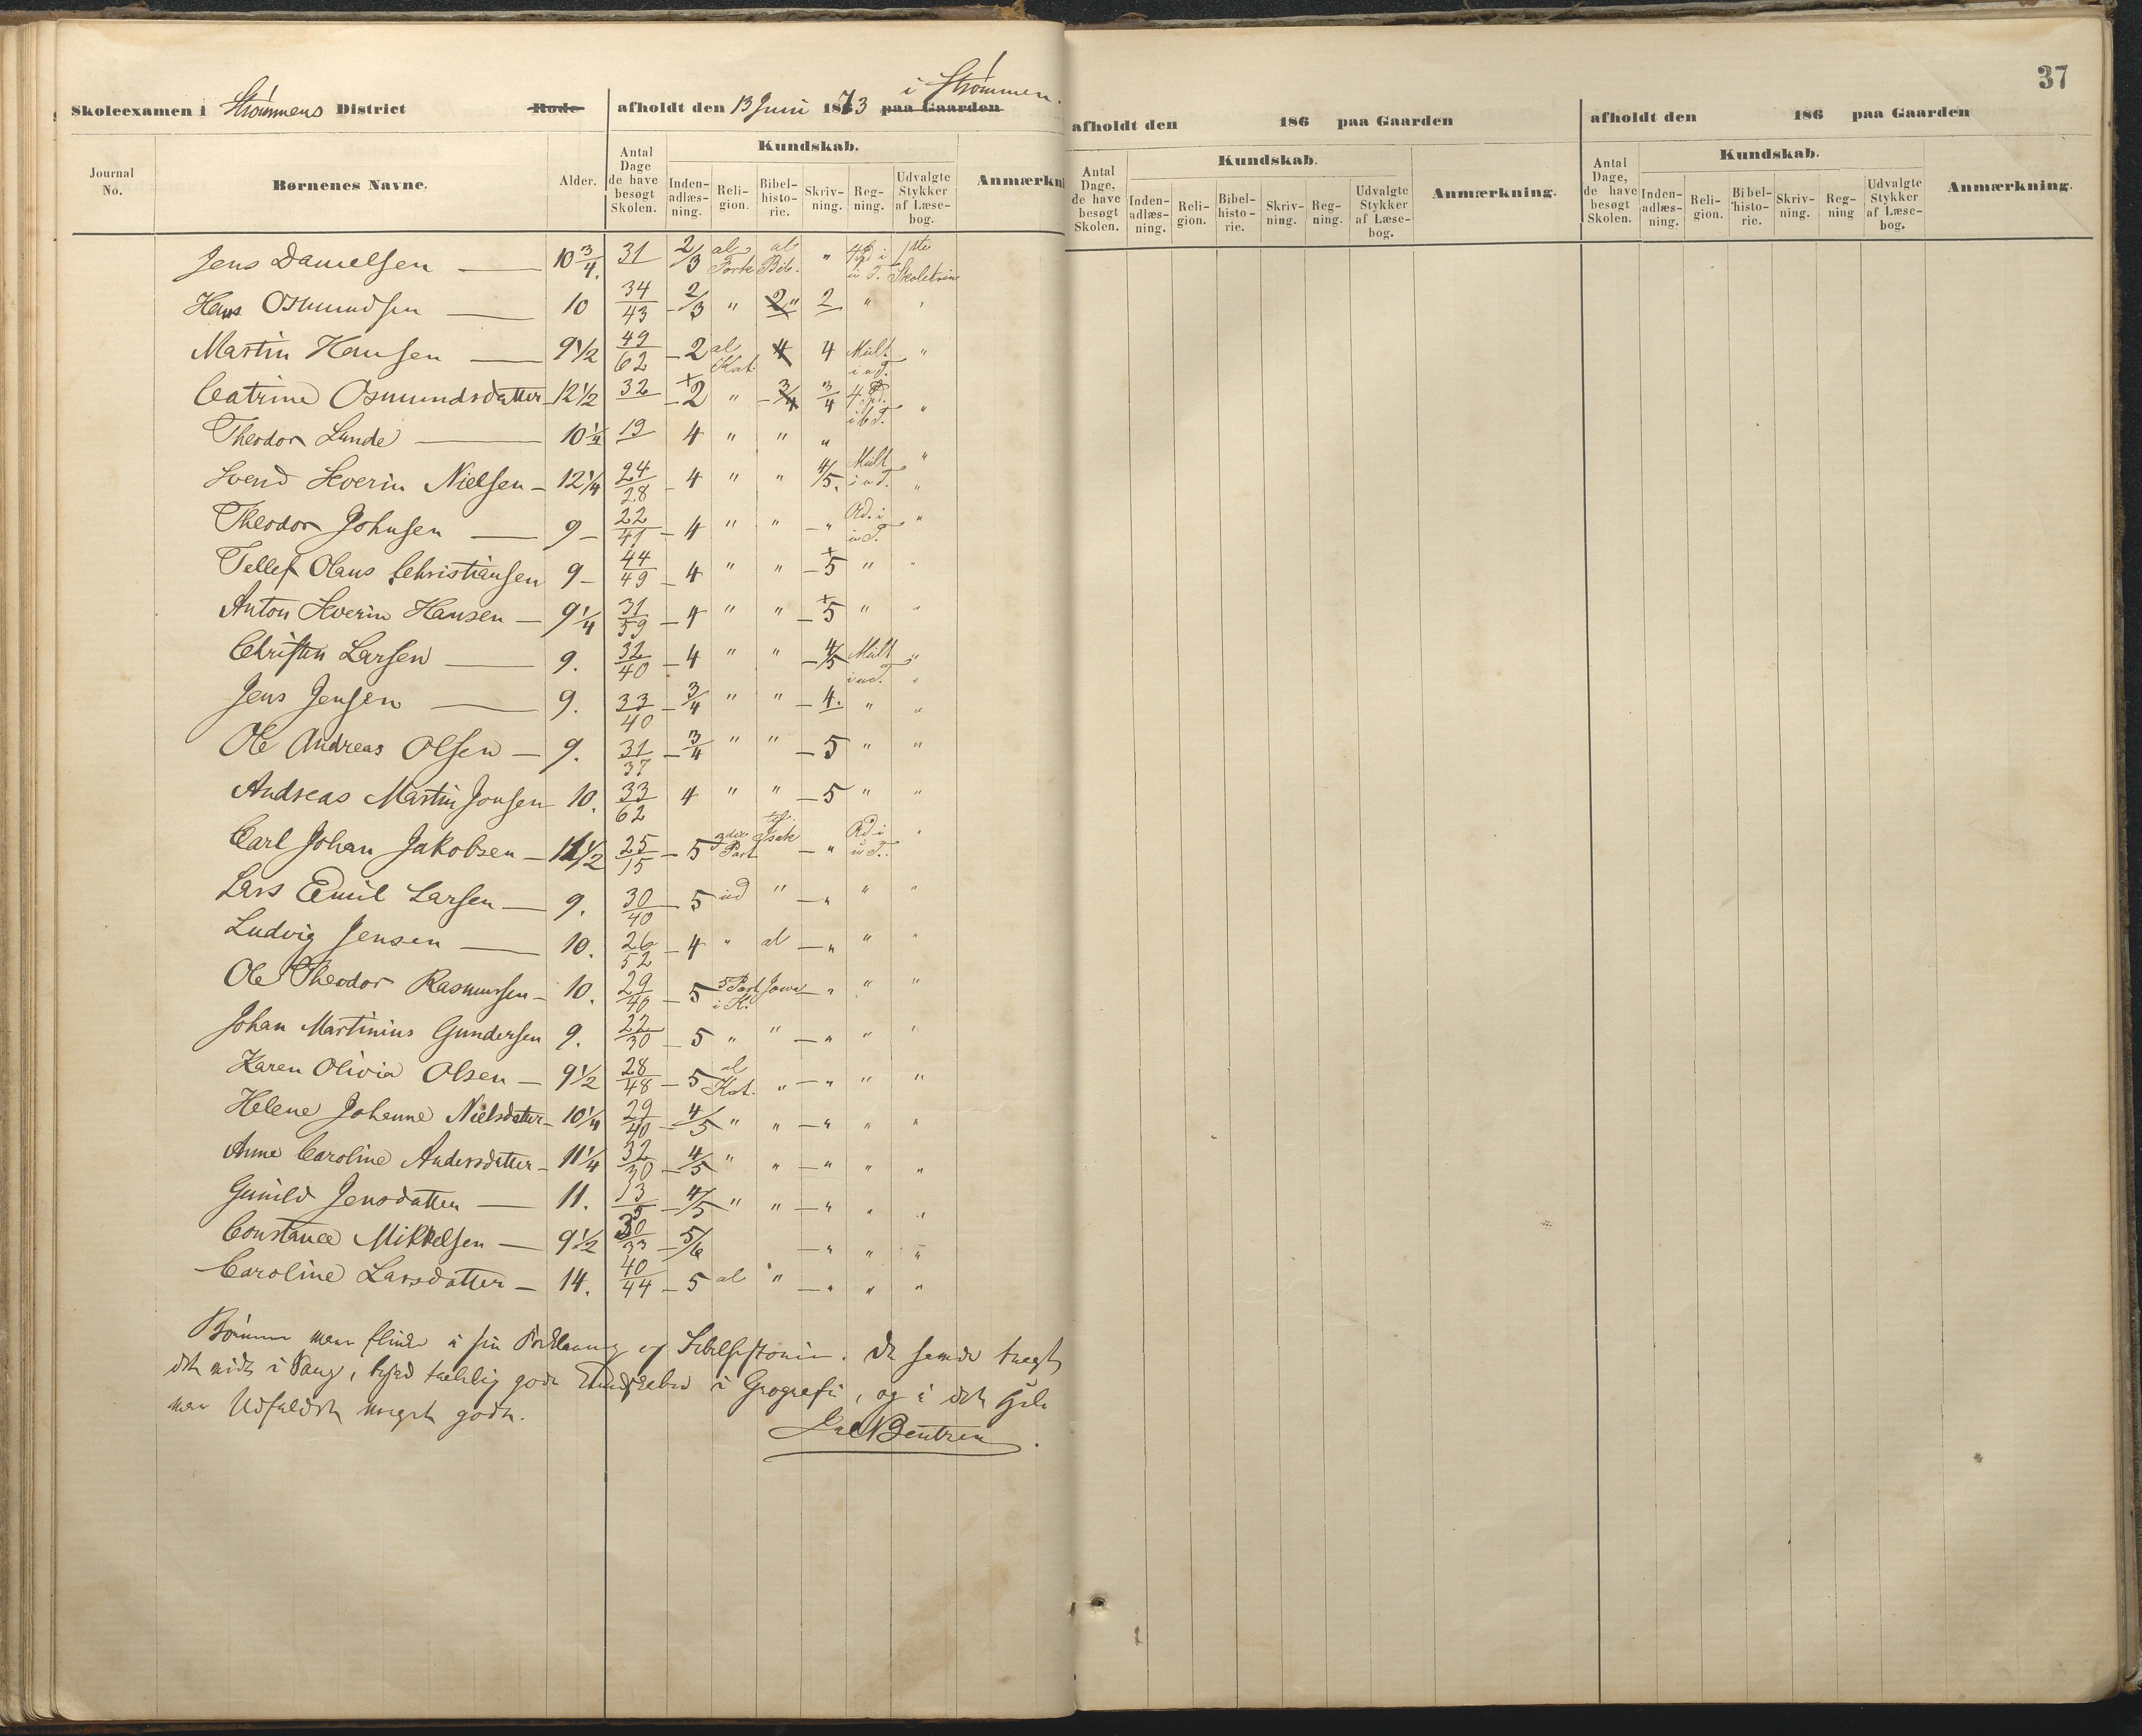 37
i Strømmen.
Skoleexamen i Strømmens District Rode afholdt den 13 Juni 1873 paa Gaarden
Journal No. Børnenes Navne. Alder. Antal Dage de have besøgt Skolen. Kundskab. Inden-adlæs-ning. Reli-gion. Bibel-histo-rie. Skriv-ning. Reg-ning. Udvalgte Stykker af Læse-bog. Anmærkn
Jens Danielsen — 10 3/4. 31 2/3 al Fork al Bib. " 4 Sp. i u. T. 1ste Skoletrin
Hans Osmundsen — 10 34/43 - 2/3 " 2 " 2 " "
Martin Hansen — 9 1/2 49/62 - 2 al Kat. 4 4 Mult i u T. "
Catrine Osmundsdatter 12 1/2 32 - 2+ " - 3/4 3/4 4 Sp. i b T. "
Theodor Lunde — 10 1/4 19 4 " " "
Svend Severin Nielsen - 12 1/4 24/28 - 4 " " 4/5. Mult i u T. "
Theodor Johnsen — 9 - 22/41 - 4 " " - " Ad. i u T. "
Tellef Olaus Christiansen 9 - 44/49 - 4 " " - 5+ " "
Anton Severin Hansen - 9 1/4 31/59 - 4 " " - 5+ " "
Christen Larsen — 9. 32/40 - 4 " " - 4/5 Mult i u T. "
Jens Jensen — 9. 33/40 - 3/4 " " - 4. " "
Ole Andreas Olsen — 9. 31/37 - 3/4 " " - 5 " "
Andreas Martin Jonsen 10. 33/62 4 " " - 5 " "
Carl Johan Jakobsen - 11 1/2 25/15 - 5 3die Part Isak - " Ad i u T. "
Lars Emil Larsen — 9. 30/40 - 5 ud " - " " "
Ludvig Jensen — 10. 26/52 - 4 " al - " " "
Ole Theodor Rasmussen - 10. 29/40 - 5 5 Part i K. - " " "
Johan Martinius Gundersen 9. 22/30 - 5 " " - " " "
Karen Olivia Olsen — 9 1/2 28/48 - 5 al Kat. " - " " "
Helene Johanne Nielsdatter - 10 1/4 29/40 - 4/5 " " - " " "
Anne Caroline Andersdatter - 11 1/4 32/30 - 4/5 " " - " " "
Gunild Jensdatter — 11. 13/5 - 4/5 " " - " " "
Constance Mikkelsen — 9 1/2 30/33 - 5/6 - " " "
Caroline Larsdatter — 14. 40/44 - 5 al " - " " "
Børnene vare flinke i sin Forklaring og Bibelhistorie. De
i Sang, godt Kundskaber i Geografi, og i det Hele
var Udfaldet meget godt.
Bentzen.
afholdt den 186 paa Gaarden
Antal Dage, de have besøgt Skolen. Kundskab. Inden-adlæs-ning. Reli-gion. Bibel-histo-rie. Skriv-ning. Reg-ning. Udvalgte Stykker af Læse-bog. Anmærkning.
afholdt den 186 paa Gaarden
Antal Dage, de have besøgt Skolen. Kundskab. Inden-adlæs-ning. Reli-gion. Bibel-histo-rie. Skriv-ning. Reg-ning Udvalgte Stykker af Læse-bog. Anmærkning.